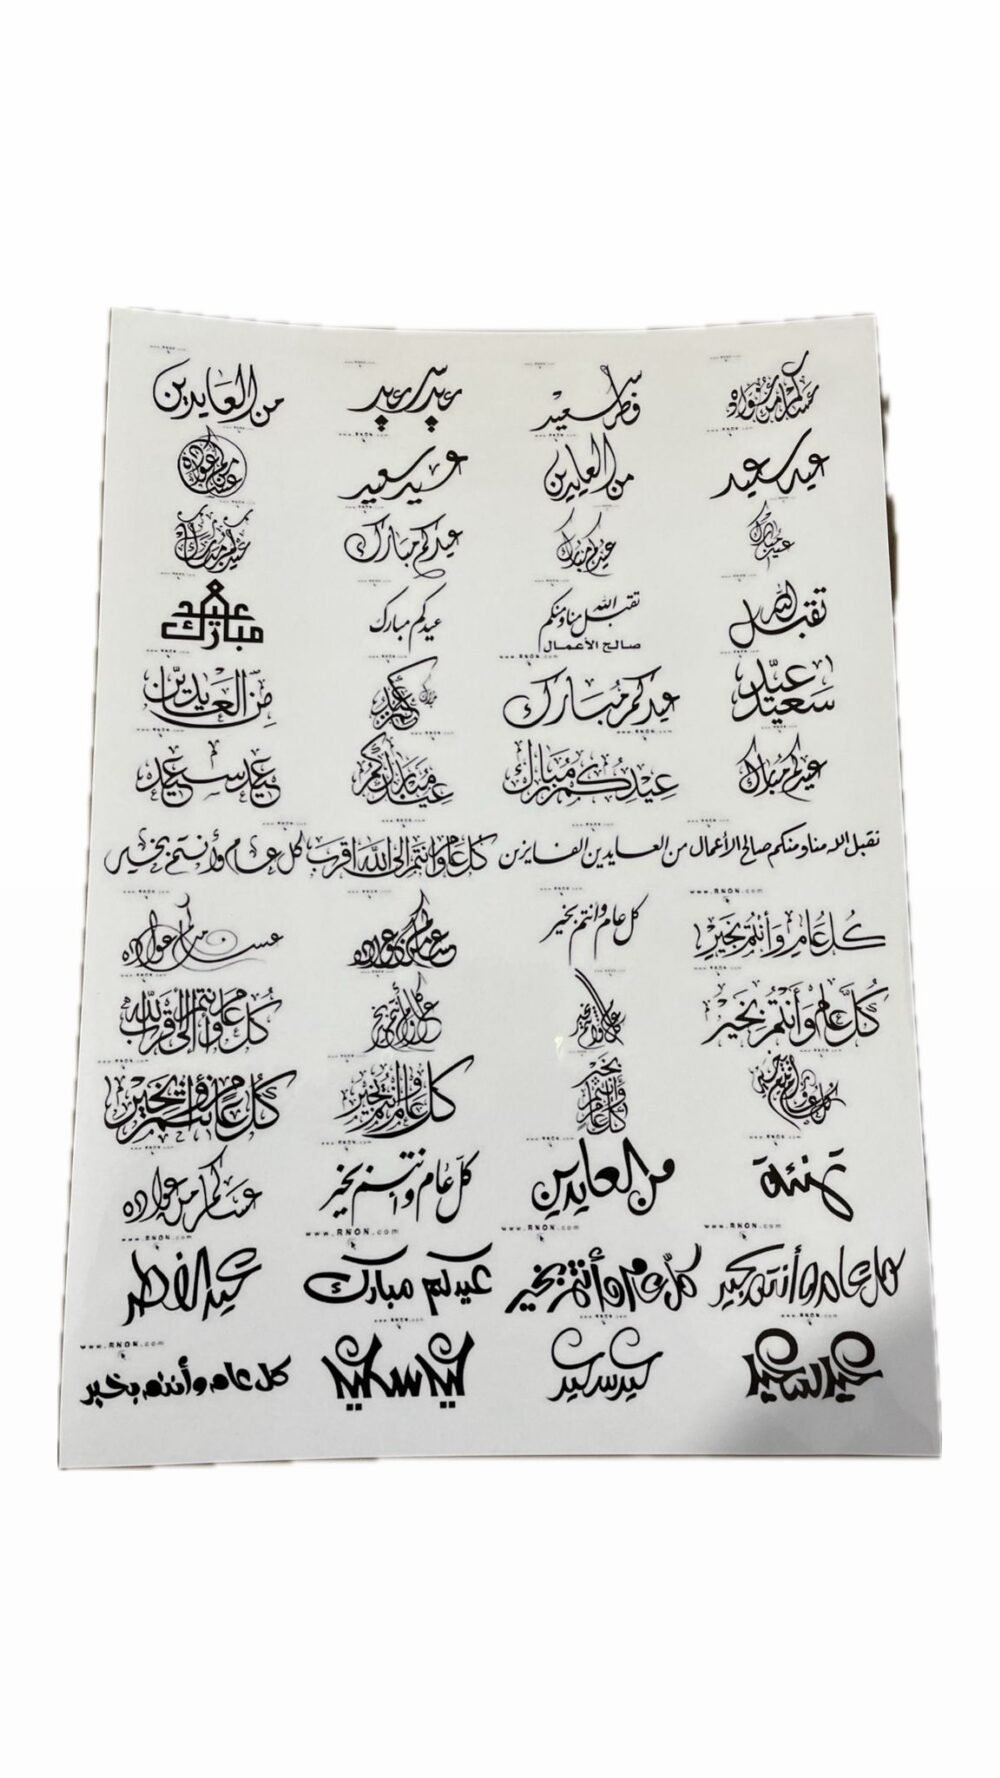 عساكم من عواده فطر سعيد عيد سعيد من العايدين
عيد سعيد من العايدين عيد سعيد عساكم من عواده
عيد مبارك عيدكم مبارك عيدكم مبارك عيدكم مبارك
تقبل الله تقبل الله منا ومنكم عيدكم مبارك عيد
صالح الأعمال مبارك
عيد سعيد عيدكم مبارك من العايدين
عيدكم مبارك عيدكم مبارك عيدكم مبارك عيد سعيد
تقبل الله منا ومنكم صالح الأعمال من العايدين الفايزين كل عام وانتم الى الله اقرب كل عام وأنتم بخير
www.RNON.com
كل عام وأنتم بخير كل عام وانتم بخير عساكم من عواده عساكم من عواده
كل عام وأنتم بخير كل عام وأنتم بخير كل عام وأنتم بخير كل عام وانتم الى الله اقرب
كل عام وأنتم بخير كل عام وأنتم بخير كل عام وأنتم بخير كل عام وأنتم بخير
تهنئة من العايدين كل عام وانتم بخير عساكم من عواده
www.RNON.com www.RNON.com www.RNON.com www.RNON.com
كل عام وأنتم بخير كل عام وأنتم بخير عيدكم مبارك عيد الفطر
www.RNON.com
عيد سعيد عيد سعيد كل عام وأنتم بخير